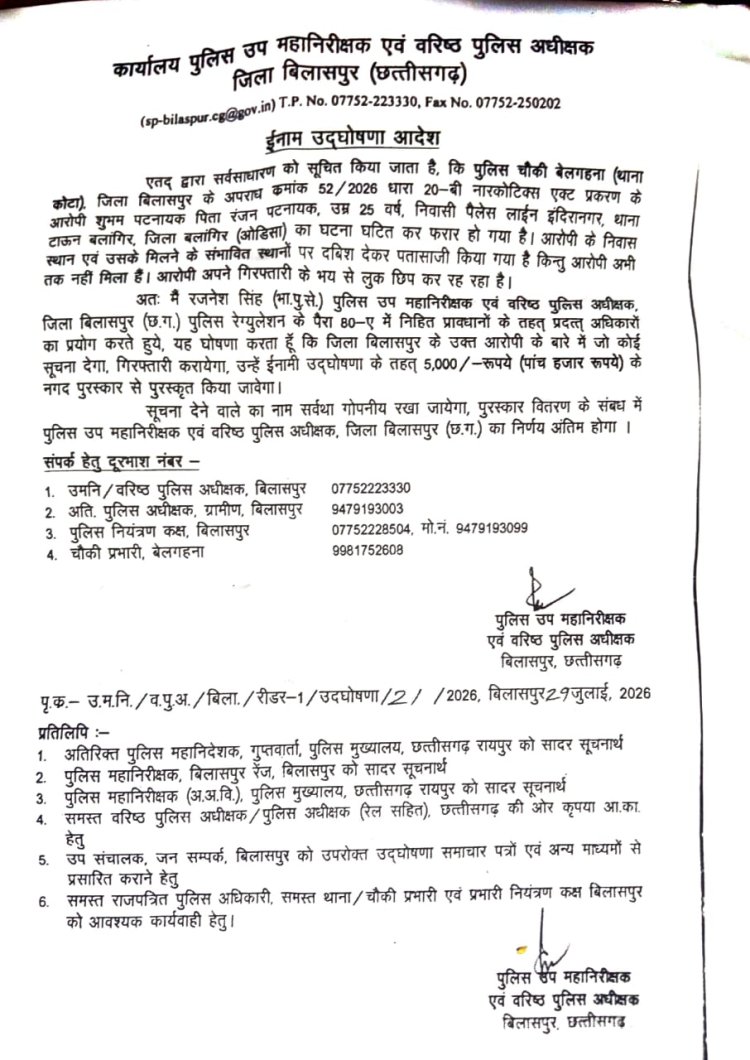 कार्यालय पुलिस उप महानिरीक्षक एवं वरिष्ठ पुलिस अधीक्षक
जिला बिलासपुर (छत्तीसगढ़)
(sp-bilaspur.cg@gov.in) T.P. No. 07752-223330, Fax No. 07752-250202
ईनाम उद्घोषणा आदेश
एतद् द्वारा सर्वसाधारण को सूचित किया जाता है, कि पुलिस चौकी बेलगहना (थाना
कोटा), जिला बिलासपुर के अपराध कमांक 52/2026 धारा 20-बी नारकोटिक्स एक्ट प्रकरण के
आरोपी शुभम पटनायक पिता रंजन पटनायक, उम्र 25 वर्ष, निवासी पैलेस लाईन इंदिरानगर, थाना
टाऊन बलांगिर, जिला बलांगिर (ओडिसा) का घटना घटित कर फरार हो गया है। आरोपी के निवास
स्थान एवं उसके मिलने के संभावित स्थानों पर दबिश देकर पतासाजी किया गया है किन्तु आरोपी अभी
तक नहीं मिला है। आरोपी अपने गिरफ्तारी के भय से लुक छिप कर रह रहा है।
अतः मैं रजनेश सिंह (भा.पु.से.) पुलिस उप महानिरीक्षक एवं वरिष्ठ पुलिस अधीक्षक,
जिला बिलासपुर (छ.ग.) पुलिस रेग्युलेशन के पैरा 80-ए में निहित प्रावधानों के तहत् प्रदत्त् अधिकारों
का प्रयोग करते हुये, यह घोषणा करता हूँ कि जिला बिलासपुर के उक्त आरोपी के बारे में जो कोई
सूचना देगा, गिरफ्तारी करायेगा, उन्हें ईनामी उद्घोषणा के तहत् 5,000/-रूपये (पांच हजार रूपये) के
नगद पुरस्कार से पुरस्कृत किया जावेगा।
सूचना देने वाले का नाम सर्वथा गोपनीय रखा जायेगा, पुरस्कार वितरण के संबध में
पुलिस उप महानिरीक्षक एवं वरिष्ठ पुलिस अधीक्षक, जिला बिलासपुर (छ.ग.) का निर्णय अंतिम होगा ।
संपर्क हेतु दूरभाश नंबर –
1. उमनि/वरिष्ठ पुलिस अधीक्षक, बिलासपुर 07752223330
2. अति. पुलिस अधीक्षक, ग्रामीण, बिलासपुर 9479193003
3. पुलिस नियंत्रण कक्ष, बिलासपुर 07752228504, मो.नं. 9479193099
4. चौकी प्रभारी, बेलगहना 9981752608
पुलिस उप महानिरीक्षक
एवं वरिष्ठ पुलिस अधीक्षक
बिलासपुर, छत्तीसगढ़
पृ.क.– उ.म.नि./व.पु.अ./बिला./रीडर-1/उदघोषणा/21/2026, बिलासपुर 29 जुलाई, 2026
प्रतिलिपि :–
1. अतिरिक्त पुलिस महानिदेशक, गुप्तवार्ता, पुलिस मुख्यालय, छत्तीसगढ़ रायपुर को सादर सूचनार्थ
2. पुलिस महानिरीक्षक, बिलासपुर रेंज, बिलासपुर को सादर सूचनार्थ
3. पुलिस महानिरीक्षक (अ.अ.वि.), पुलिस मुख्यालय, छत्तीसगढ़ रायपुर को सादर सूचनार्थ
4. समस्त वरिष्ठ पुलिस अधीक्षक/पुलिस अधीक्षक (रेल सहित), छत्तीसगढ़ की ओर कृपया आ.का.
हेतु
5. उप संचालक, जन सम्पर्क, बिलासपुर को उपरोक्त उद्घोषणा समाचार पत्रों एवं अन्य माध्यमों से
प्रसारित कराने हेतु
6. समस्त राजपत्रित पुलिस अधिकारी, समस्त थाना/चौकी प्रभारी एवं प्रभारी नियंत्रण कक्ष बिलासपुर
को आवश्यक कार्यवाही हेतु।
पुलिस उप महानिरीक्षक
एवं वरिष्ठ पुलिस अधीक्षक
बिलासपुर, छत्तीसगढ़